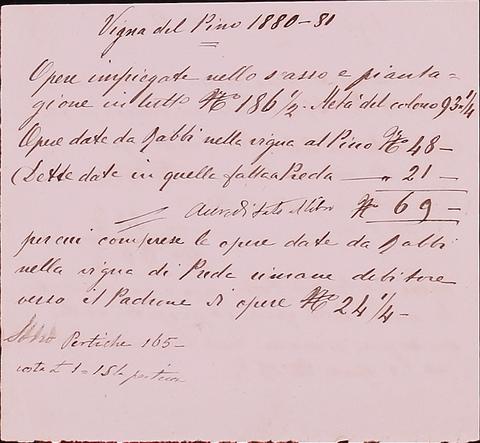 Vigna del Pino 1880-81
Opere impiegate nello scasso e pianta=
gione in tutto N° 186 1/2. Metà del colono 93.1/4
Opere date da Babbi nella vigna al Pino N° 48-
Dette date in quella fatta a Preda — " 21 —
Accreditato a libro N° 69-
percui comprese le opere date da Babbi
nella vigna di Preda rimane debitore
verso il Padrone di opere N° 24 1/4-
Pertiche 165-
costa £ 1=15 la pertica